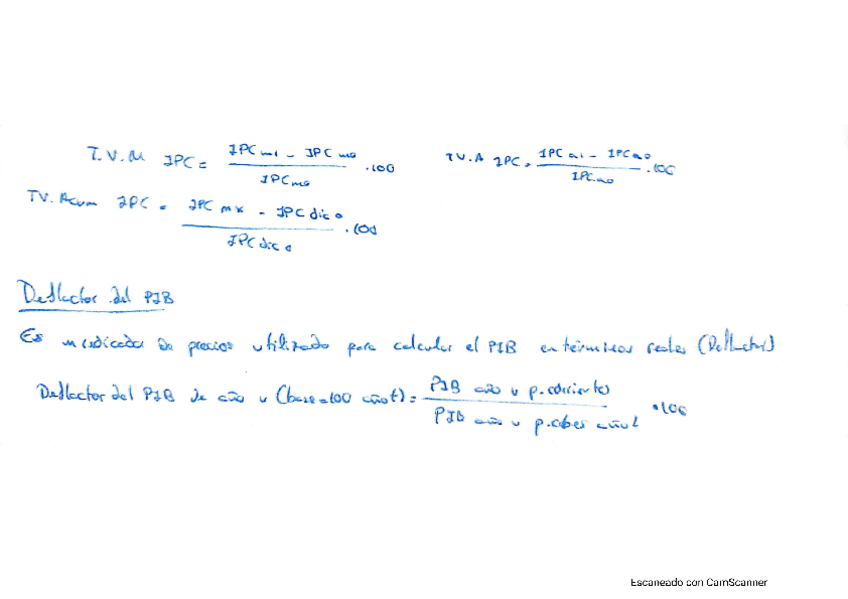 T.V.M IPC = (IPC m1 - IPC m0) / IPC m0 · 100
TV.A IPC = (IPC a1 - IPC a0) / IPC a0 · 100
TV. Acum IPC = (IPC mx - IPC dic 0) / IPC dic 0 · 100
Deflactor del PIB
Es un indicador de precios utilizado para calcular el PIB en términos reales
Deflactor del PIB de año v (base=100 año t) = (PIB año v p.corrientes) / (PIB año v p. año t) · 100
Escaneado con CamScanner